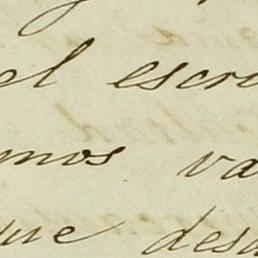 el escri
mos va
que desd